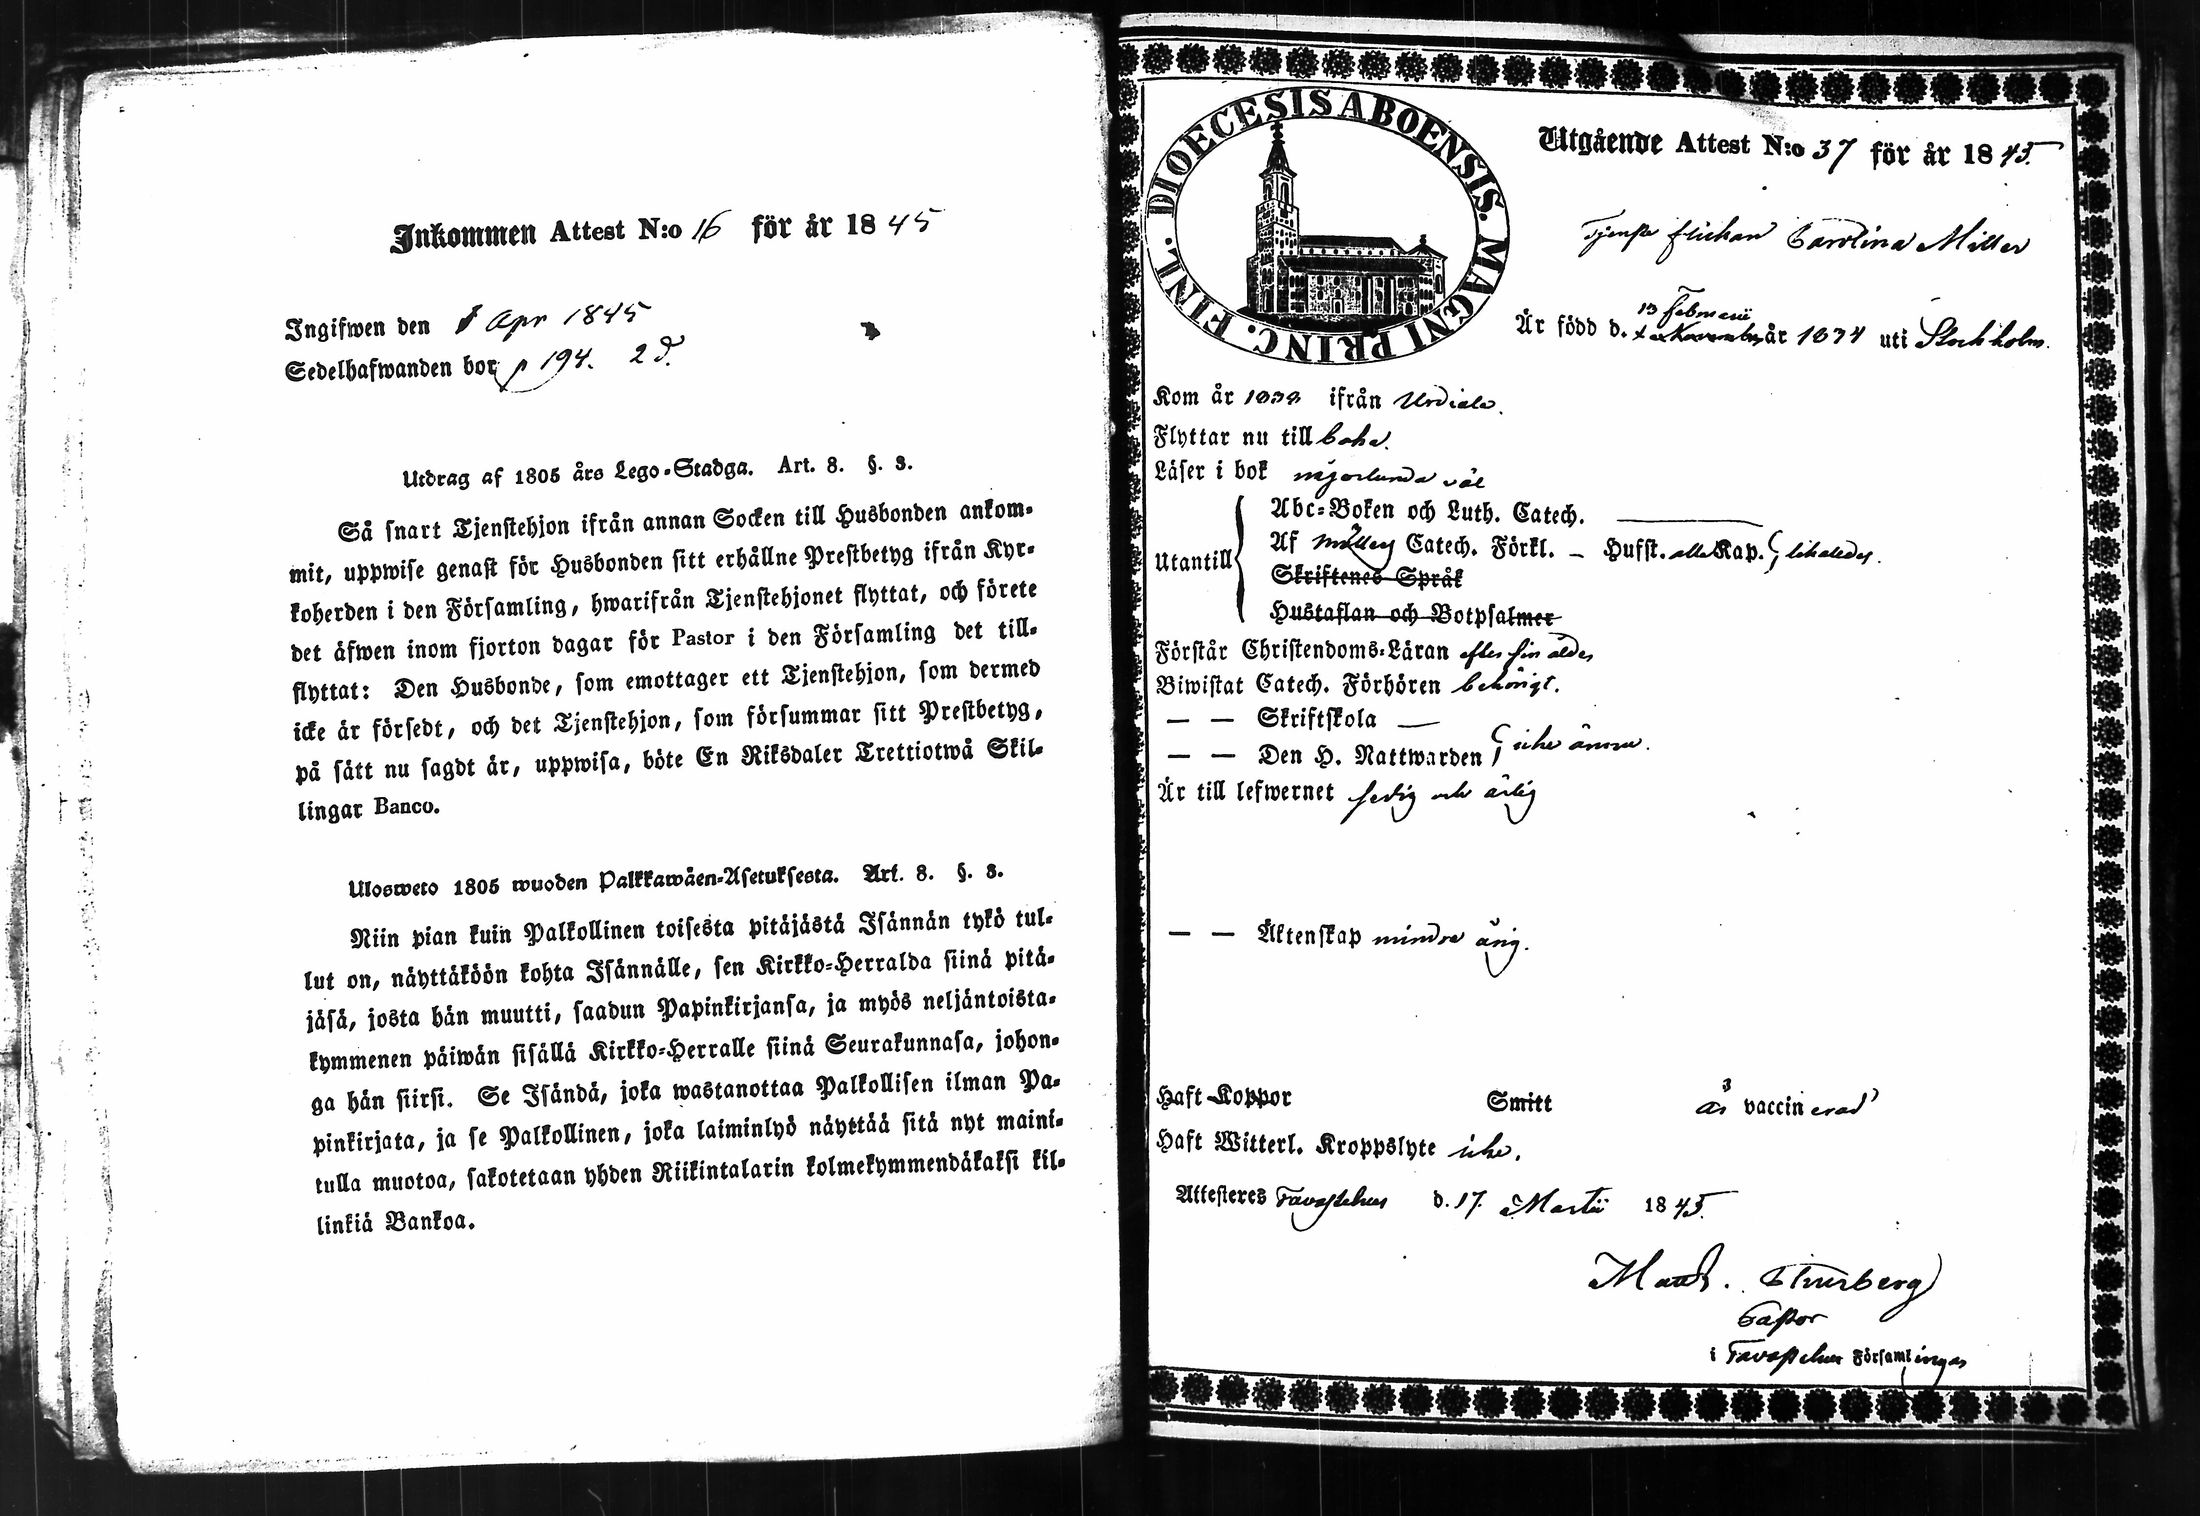 Inkommen Attest N:o 16 för år 1845
Ingifwen den 1 Apr 1845
Sedelhafwanden bor p 194. 2 d.
Utdrag af 1805 års Lego-Stadga. Art. 8. §. 3.
Så snart Tjenstehjon ifrån annan Socken till Husbonden ankom-
mit, uppwise genast för Husbonden sitt erhållne Prestbetyg ifrån Kyr-
koherden i den Församling, hwarifrån Tjenstehjonet flyttat, och förete
det äfwen inom fjorton dagar för Pastor i den Församling det till-
flyttat: Den Husbonde, som emottager ett Tjenstehjon, som dermed
icke är försedt, och det Tjenstehjon, som försummar sitt Prestbetyg,
på sätt nu sagdt är, uppwisa, böte En Riksdaler Trettiotwå Skil-
lingar Banco.
Ulosweto 1805 wuoden Palkkawäen-Asetuksesta. Art. 8. §. 3.
Niin pian kuin Palkollinen toisesta pitäjästä Isännän tykö tul-
lut on, näyttäköön kohta Isännälle, sen Kirkko-Herralda siinä pitä-
jäsä, josta hän muutti, saadun Papinkirjansa, ja myös neljäntoista-
kymmenen päiwän sisällä Kirkko-Herralle siinä Seurakunnasa, johon-
ga hän siirsi. Se Isändä, joka wastanottaa Palkollisen ilman Pa-
pinkirjata, ja se Palkollinen, joka laiminlyö näyttää sitä nyt maini-
tulla muotoa, sakotetaan yhden Riikintalarin kolmekymmendäkaksi kil-
linkiä Bankoa.
DIOECESIS ABOENSIS. MAGNI PRINC. FINL.
Utgående Attest N:o 37 för år 1845.
Tjenste flickan Carolina Miller
13 Februarii
Är född d. November år 1834 uti Stockholm.
Kom år 1838 ifrån Urdiala.
Flyttar nu till Loka.
Läser i bok någorlunda väl
Abc-Boken och Luth. Catech.
Utantill Af Möllers Catech. Förkl. – Husst. alla Kap. likaledes.
Skriftenes Språk
Hustaflan och Botpsalmer
Förstår Christendoms-Läran efter sin ålder
Biwistat Catech. Förhören behörigt.
— — Skriftskola —
— — Den H. Nattwarden icke ännu.
Är till lefwernet sedig och ärlig
— — Äktenskap minderårig.
Haft Koppor Smitt är vaccinerad
Haft Witterl. Kroppslyte icke.
Attesteres Tavastehus d. 17. Martii 1845.
Pastor
i Tavastehus Församlingar